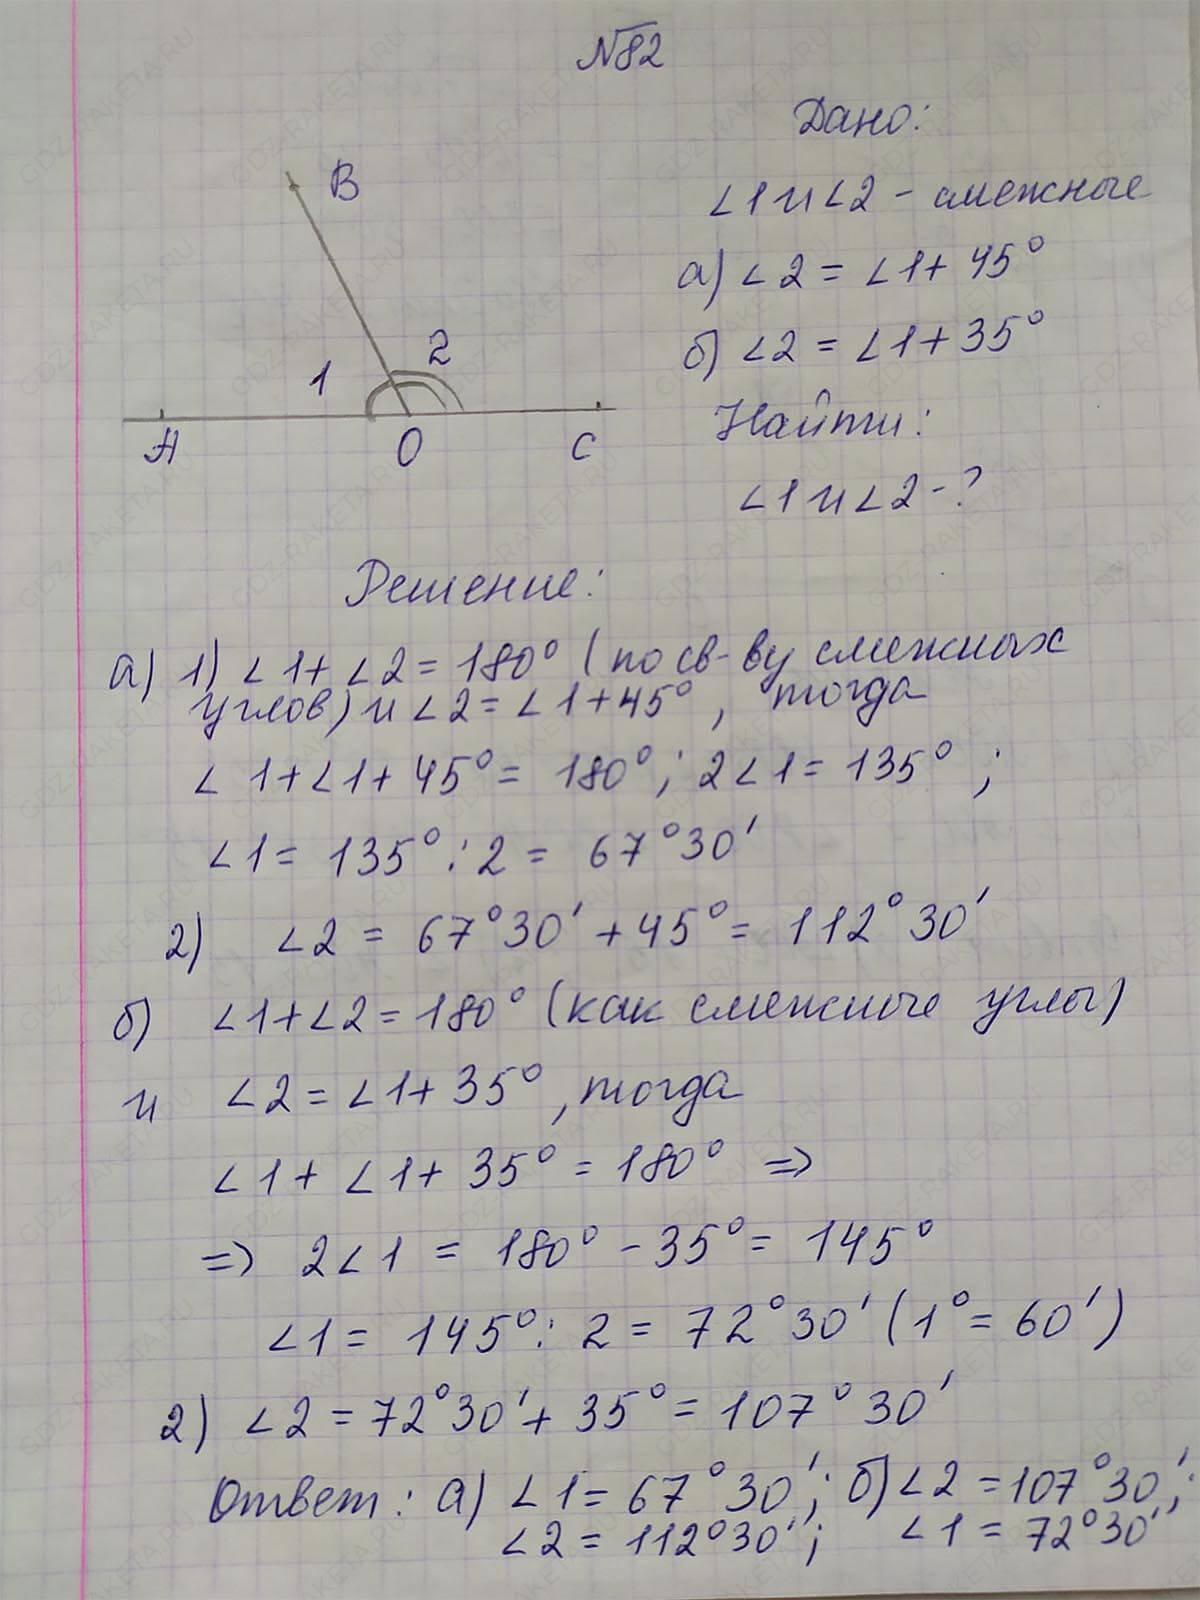 №82
Дано:
∠1 и ∠2 - смежные
а) ∠2 = ∠1 + 45°
б) ∠2 = ∠1 + 35°
Найти:
∠1 и ∠2 - ?
B
1
2
A
O
C
Решение:
а) 1) ∠1 + ∠2 = 180° (по св-ву смежных
углов) и ∠2 = ∠1 + 45°, тогда
∠1 + ∠1 + 45° = 180°; 2∠1 = 135°;
∠1 = 135° : 2 = 67°30′
2) ∠2 = 67°30′ + 45° = 112°30′
б) ∠1 + ∠2 = 180° (как смежные углы)
и ∠2 = ∠1 + 35°, тогда
∠1 + ∠1 + 35° = 180° =>
=> 2∠1 = 180° - 35° = 145°
∠1 = 145° : 2 = 72°30′ (1° = 60′)
2) ∠2 = 72°30′ + 35° = 107°30′
Ответ: а) ∠1 = 67°30′; б) ∠2 = 107°30′;
∠2 = 112°30′; ∠1 = 72°30′
GDZ-RAKETA.RU